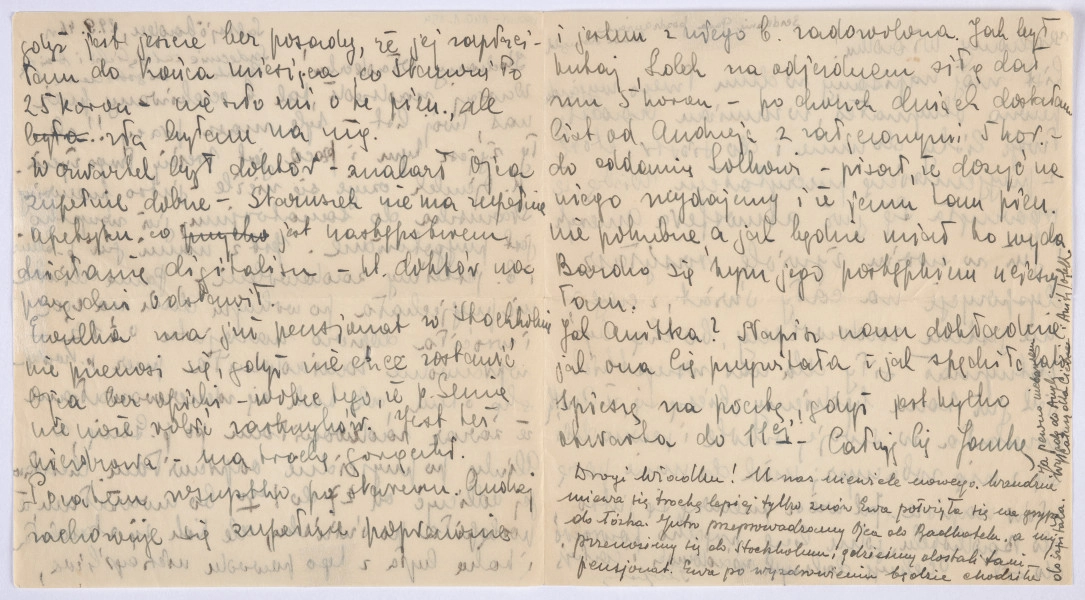 gdyż jest jeszcze bez posady, że jej zapłaci-
łam do końca miesiąca, co stanowiło
25 koron - nie szło mi o te pien., ale
była zła byłam na nią.
W czwartek był doktór - znalazł Ojca
zupełnie dobrze -. Staruszek nie ma zupełnie
apetytu, co jest następstwem
działania digitalisu - kt. doktór na
razie odstawił.
Ewulka ma już pensjonat w Stockholmie
nie przenosi się, gdyż nie chce zostawić
Ojca bez opieki - wobec tego, że p. Senia
nie może robić zastrzyków. Jest też -
- ma trochę gorączki.
Poza tem wszystko po staremu. Andrzej
zachowuje się zupełnie poprawnie
i jestem z niego b. zadowolona. Jak był
tutaj, Lolek na odjezdnem dał
mu 5 koron - po dwóch dniach dostałam
list od Andrzeja z załączonymi 5 kor. -
do oddania Lolkowi - pisał, że dosyć na
niego wydajemy i że jemu tam pien.
nie potrzebne, a jak będzie miał to wyda.
Bardzo się tym jego postępkiem ucieszy-
łam.
Jak Anitka? Napisz nam dokładnie
jak ona Cię przywitała i jak spędziłeś
Spieszę na pocztę, gdyż jest tylko
otwarta do 11ej - Całuję Cię Janka
Drogi Władku! U nas niewiele nowego.
miewa się trochę lepiej tylko znów Ewa położyła się na grypę
do łóżka. Jutro przeprowadzamy Ojca do Badhotelu, a my
przenosimy się do Stockholmu, gdzieśmy dostali tam -
pensjonat. Ewa po wyzdrowieniu będzie chodziła
do szpitala